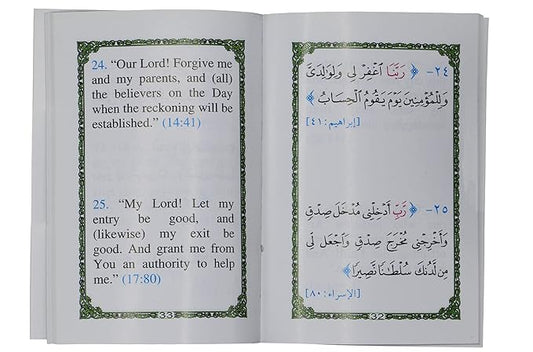 24. “Our Lord! Forgive me
and my parents, and (all)
the believers on the Day
when the reckoning will be
established.” (14:41)
25. “My Lord! Let my
entry be good, and
(likewise) my exit be
good. And grant me from
You an authority to help
me.” (17:80)
33
٢٤- ﴿ رَبَّنَا ٱغْفِرْ لِى وَلِوَٰلِدَىَّ
وَلِلْمُؤْمِنِينَ يَوْمَ يَقُومُ ٱلْحِسَابُ ﴾
[إبراهيم: ٤١]
٢٥- ﴿ رَّبِّ أَدْخِلْنِى مُدْخَلَ صِدْقٍ
وَأَخْرِجْنِى مُخْرَجَ صِدْقٍ وَٱجْعَل لِّى
مِن لَّدُنكَ سُلْطَـٰنًا نَّصِيرًا﴾
[الإسراء: ٨٠]
32